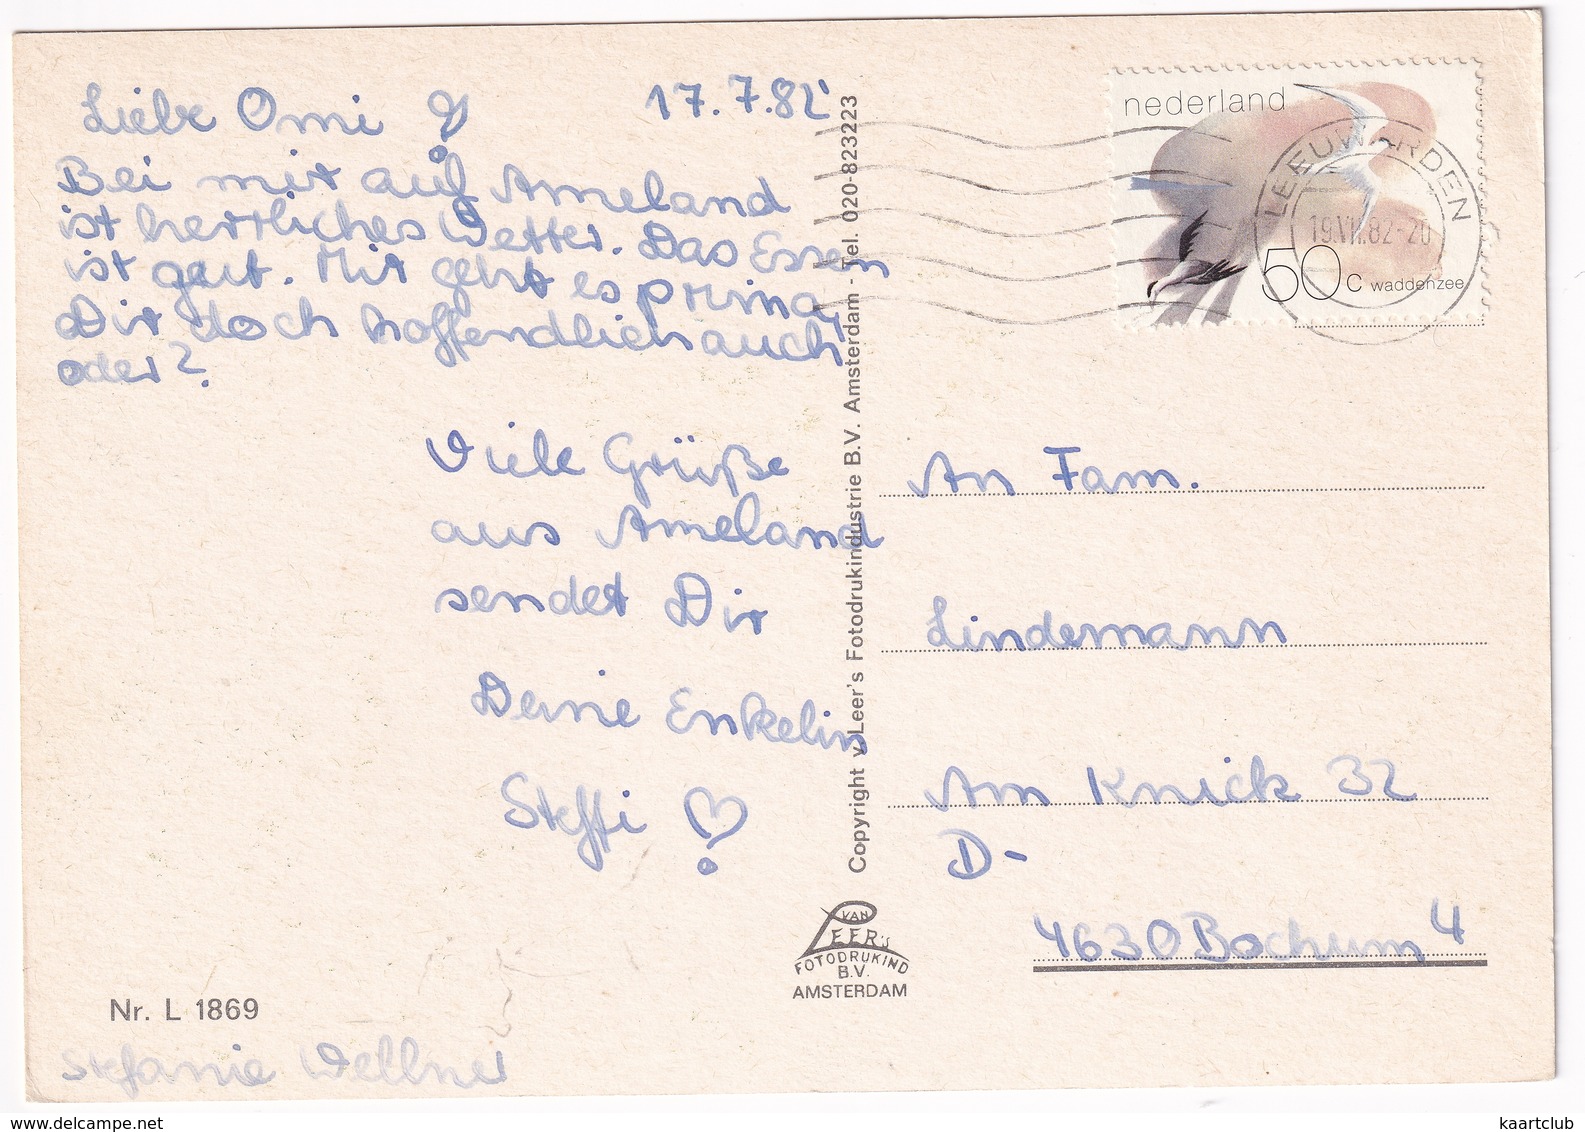 17.7.82
Liebe Omi
Bei mir auf Ameland
ist herrliches Wetter. Das Essen
ist gut. Mir geht es prima,
Dir doch hoffendlich auch
oder?
Viele Grüße
aus Ameland
sendet Dir
Deine Enkelin
Steffi
Nr. L 1869
Stefanie Wellner
Copyright v. Leer's Fotodrukindustrie B.V. Amsterdam - Tel. 020-823223
VAN
LEER'S
FOTODRUKIND
B.V.
AMSTERDAM
nederland
50c waddenzee
LEEUWARDEN
19.VII.82-20
An Fam.
Lindemann
Am Knick 32
D-
4630 Bochum 4
www.delcampe.net
kaartclub